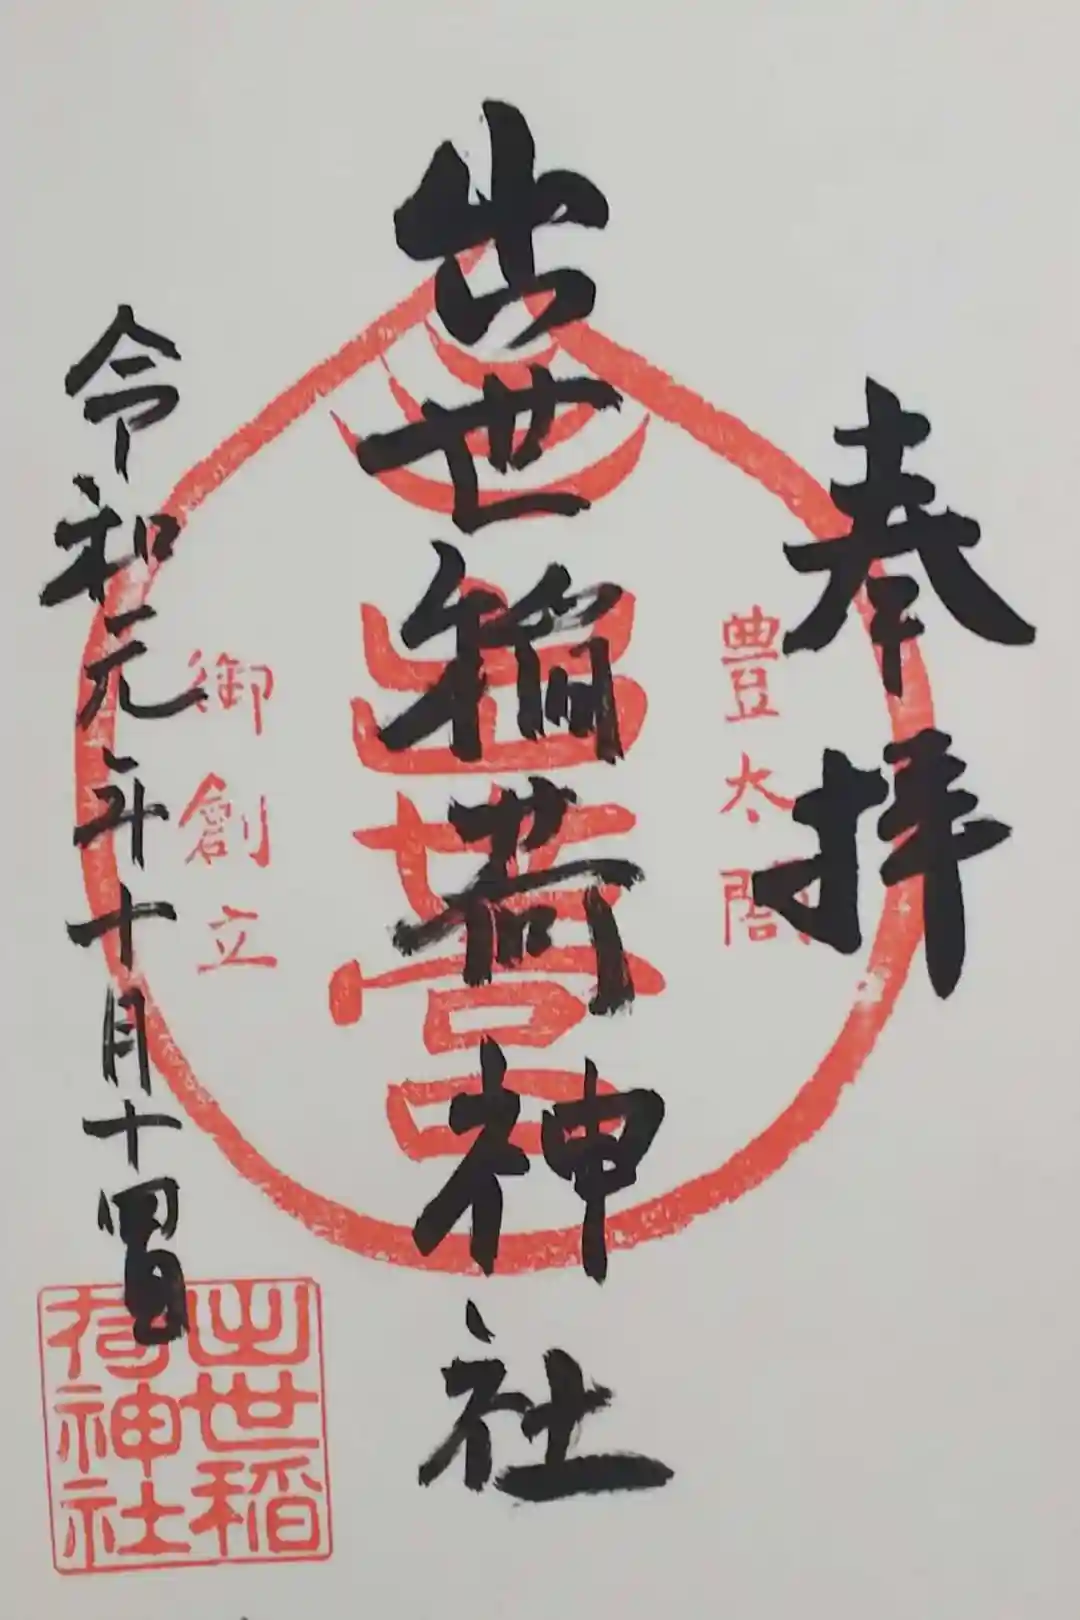 奉拝
豊太閤
出世稲荷神社
出世宮
御創立
令和元年十月十四日
出世稲
荷神社